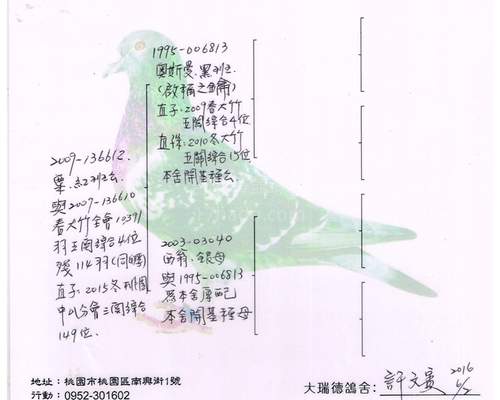 1995-006813
奧斯曼.黑斑.
(啟稱之鑰)
直子:2009春大竹
五關綜合4位
直孫:2010冬大竹
五關綜合15位
本舍開基種公
2009-136612.
栗.紅斑公
與2007-136610
春大竹全會10391
羽五關綜合4位
殘114羽(同胞)
直子:2015冬桃園
中山分會三關綜合
149位.
2003-03040
西翁.銀母
與1995-006813
為本舍原配
本舍開基種母
地址:桃園市桃園區南興街1號
行動:0952-301602
大瑞德鴿舍:
2016